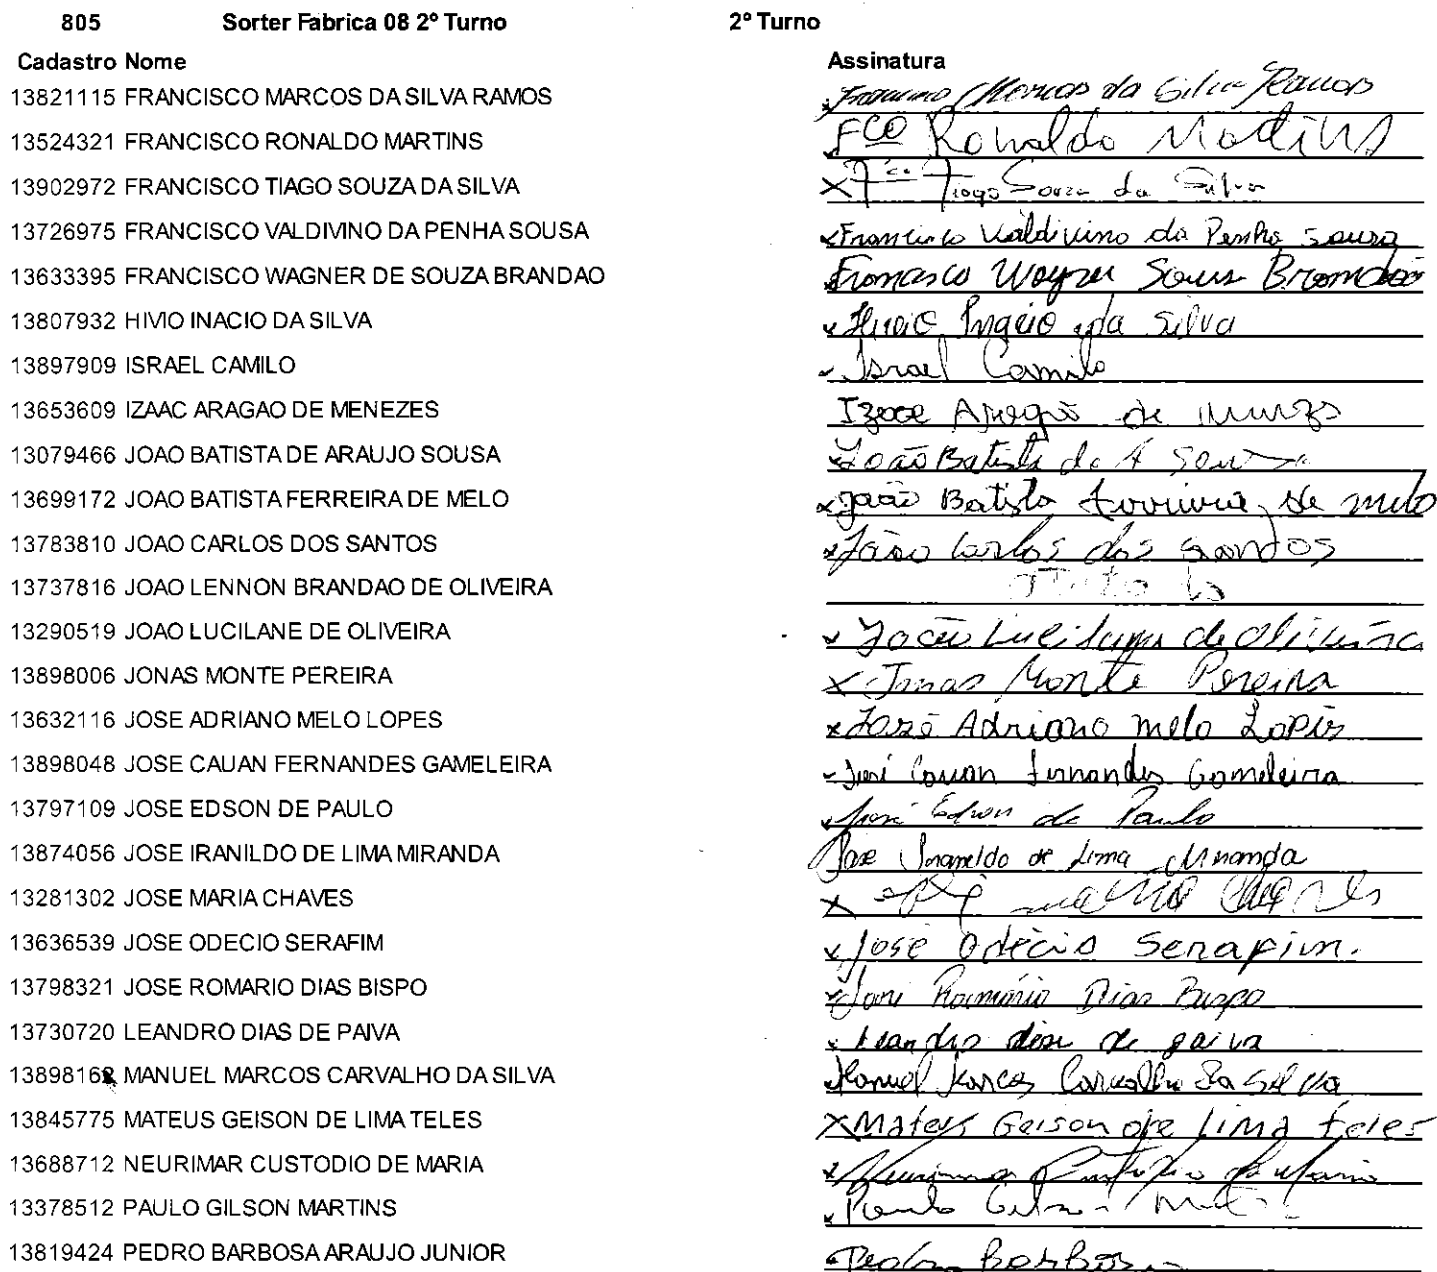 805 Sorter Fabrica 08 2º Turno 2º Turno
Cadastro Nome Assinatura
13821115 FRANCISCO MARCOS DA SILVA RAMOS Marcos da Silva Ramos
13524321 FRANCISCO RONALDO MARTINS FCO Ronaldo Martins
13902972 FRANCISCO TIAGO SOUZA DA SILVA X Tiago Souza da Silva
13726975 FRANCISCO VALDIVINO DA PENHA SOUSA x Francisco Valdivino da Penha Souza
13633395 FRANCISCO WAGNER DE SOUZA BRANDAO Francisco Wagner Souza Brandão
13807932 HIVIO INACIO DA SILVA x Hivio Inacio da Silva
13897909 ISRAEL CAMILO x Israel Camilo
13653609 IZAAC ARAGAO DE MENEZES Aragão de
13079466 JOAO BATISTA DE ARAUJO SOUSA x João Batista de A
13699172 JOAO BATISTA FERREIRA DE MELO x João Batista Ferreira de melo
13783810 JOAO CARLOS DOS SANTOS x João Carlos dos Santos
13737816 JOAO LENNON BRANDAO DE OLIVEIRA
13290519 JOAO LUCILANE DE OLIVEIRA x João de Oliveira
13898006 JONAS MONTE PEREIRA X Jonas Monte Pereira
13632116 JOSE ADRIANO MELO LOPES x José Adriano melo Lopes
13898048 JOSE CAUAN FERNANDES GAMELEIRA x José Cauan Fernandes Gameleira
13797109 JOSE EDSON DE PAULO x José Edson de Paulo
13874056 JOSE IRANILDO DE LIMA MIRANDA Jose Iranildo de Lima Miranda
13281302 JOSE MARIA CHAVES X
13636539 JOSE ODECIO SERAFIM x José Odécio Serafim.
13798321 JOSE ROMARIO DIAS BISPO x José Romário Dias Bispo
13730720 LEANDRO DIAS DE PAIVA x Leandro de paiva
13898162 MANUEL MARCOS CARVALHO DA SILVA Manuel Marcos Carvalho Da Silva
13845775 MATEUS GEISON DE LIMA TELES X Mateus Geison de lima teles
13688712 NEURIMAR CUSTODIO DE MARIA x
13378512 PAULO GILSON MARTINS x Paulo Gilson
13819424 PEDRO BARBOSA ARAUJO JUNIOR Pedro Barbosa